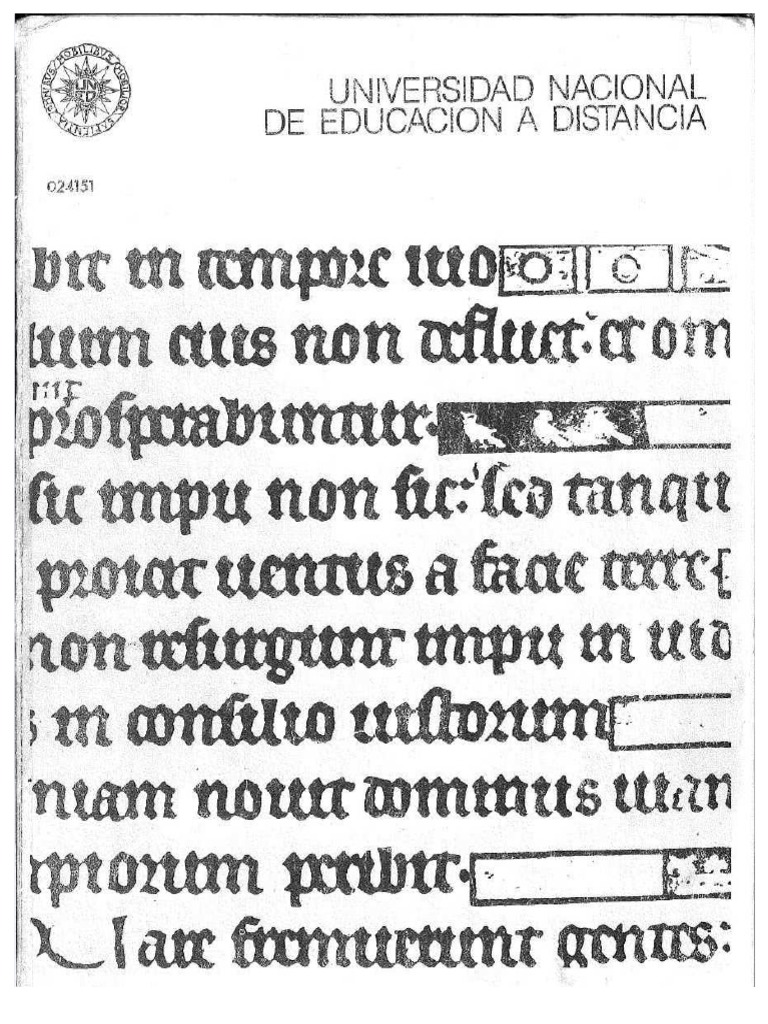 OMNIBVS MOBILIBVS MOBILIOR SAPIENTIA
UNED
UNIVERSIDAD NACIONAL
DE EDUCACION A DISTANCIA
024151
bit in tempore suo
lium eius non defluet: et om
prosperabuntur.
sic impii non sic: sed tanqu
proicit uentus a facie terre
non resurgunt impii in iud
s in consilio iustorum
niam nouit dominus uiam
mpiorum peribit.
uare fremuerunt gentes: